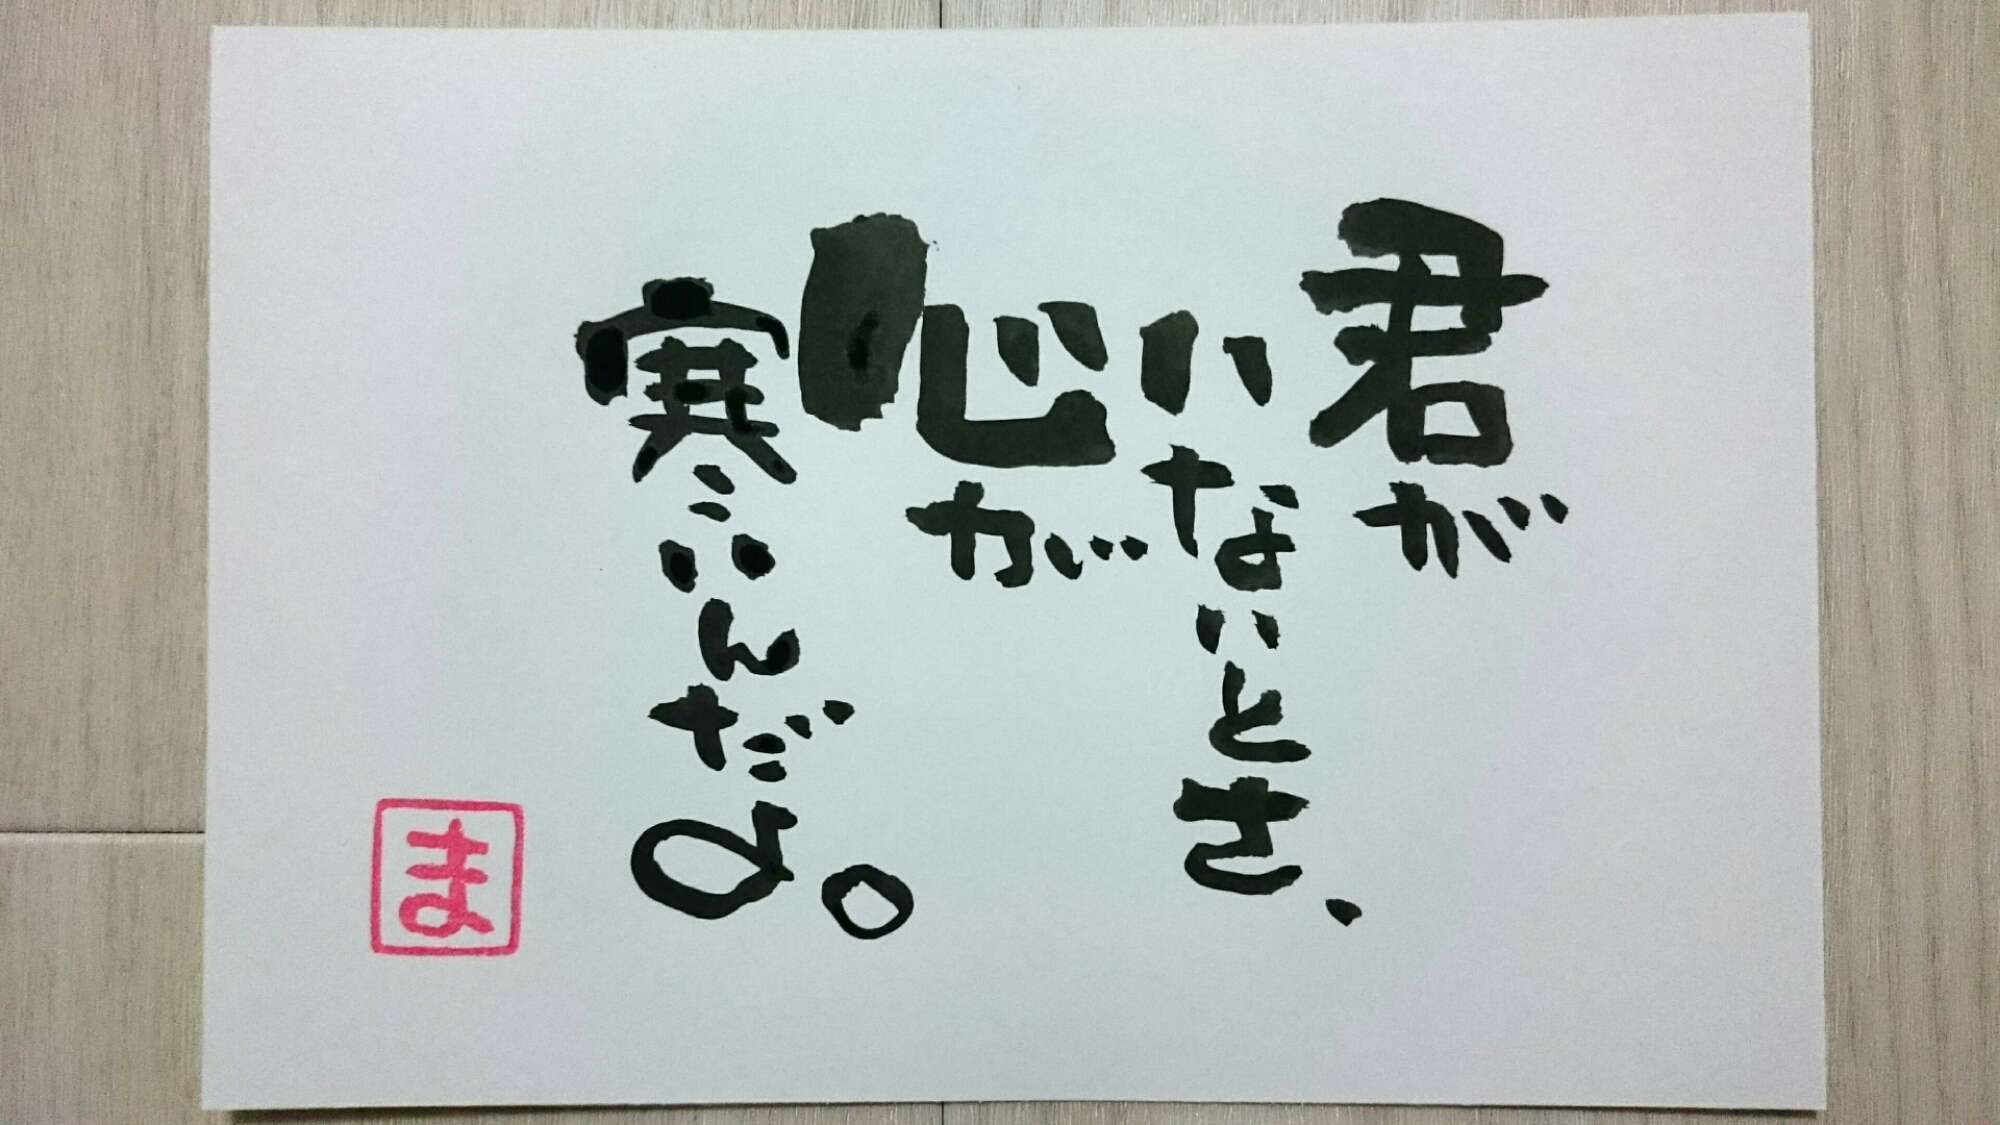 君が
いないとさ、
心が
寒いんだよ。
ま